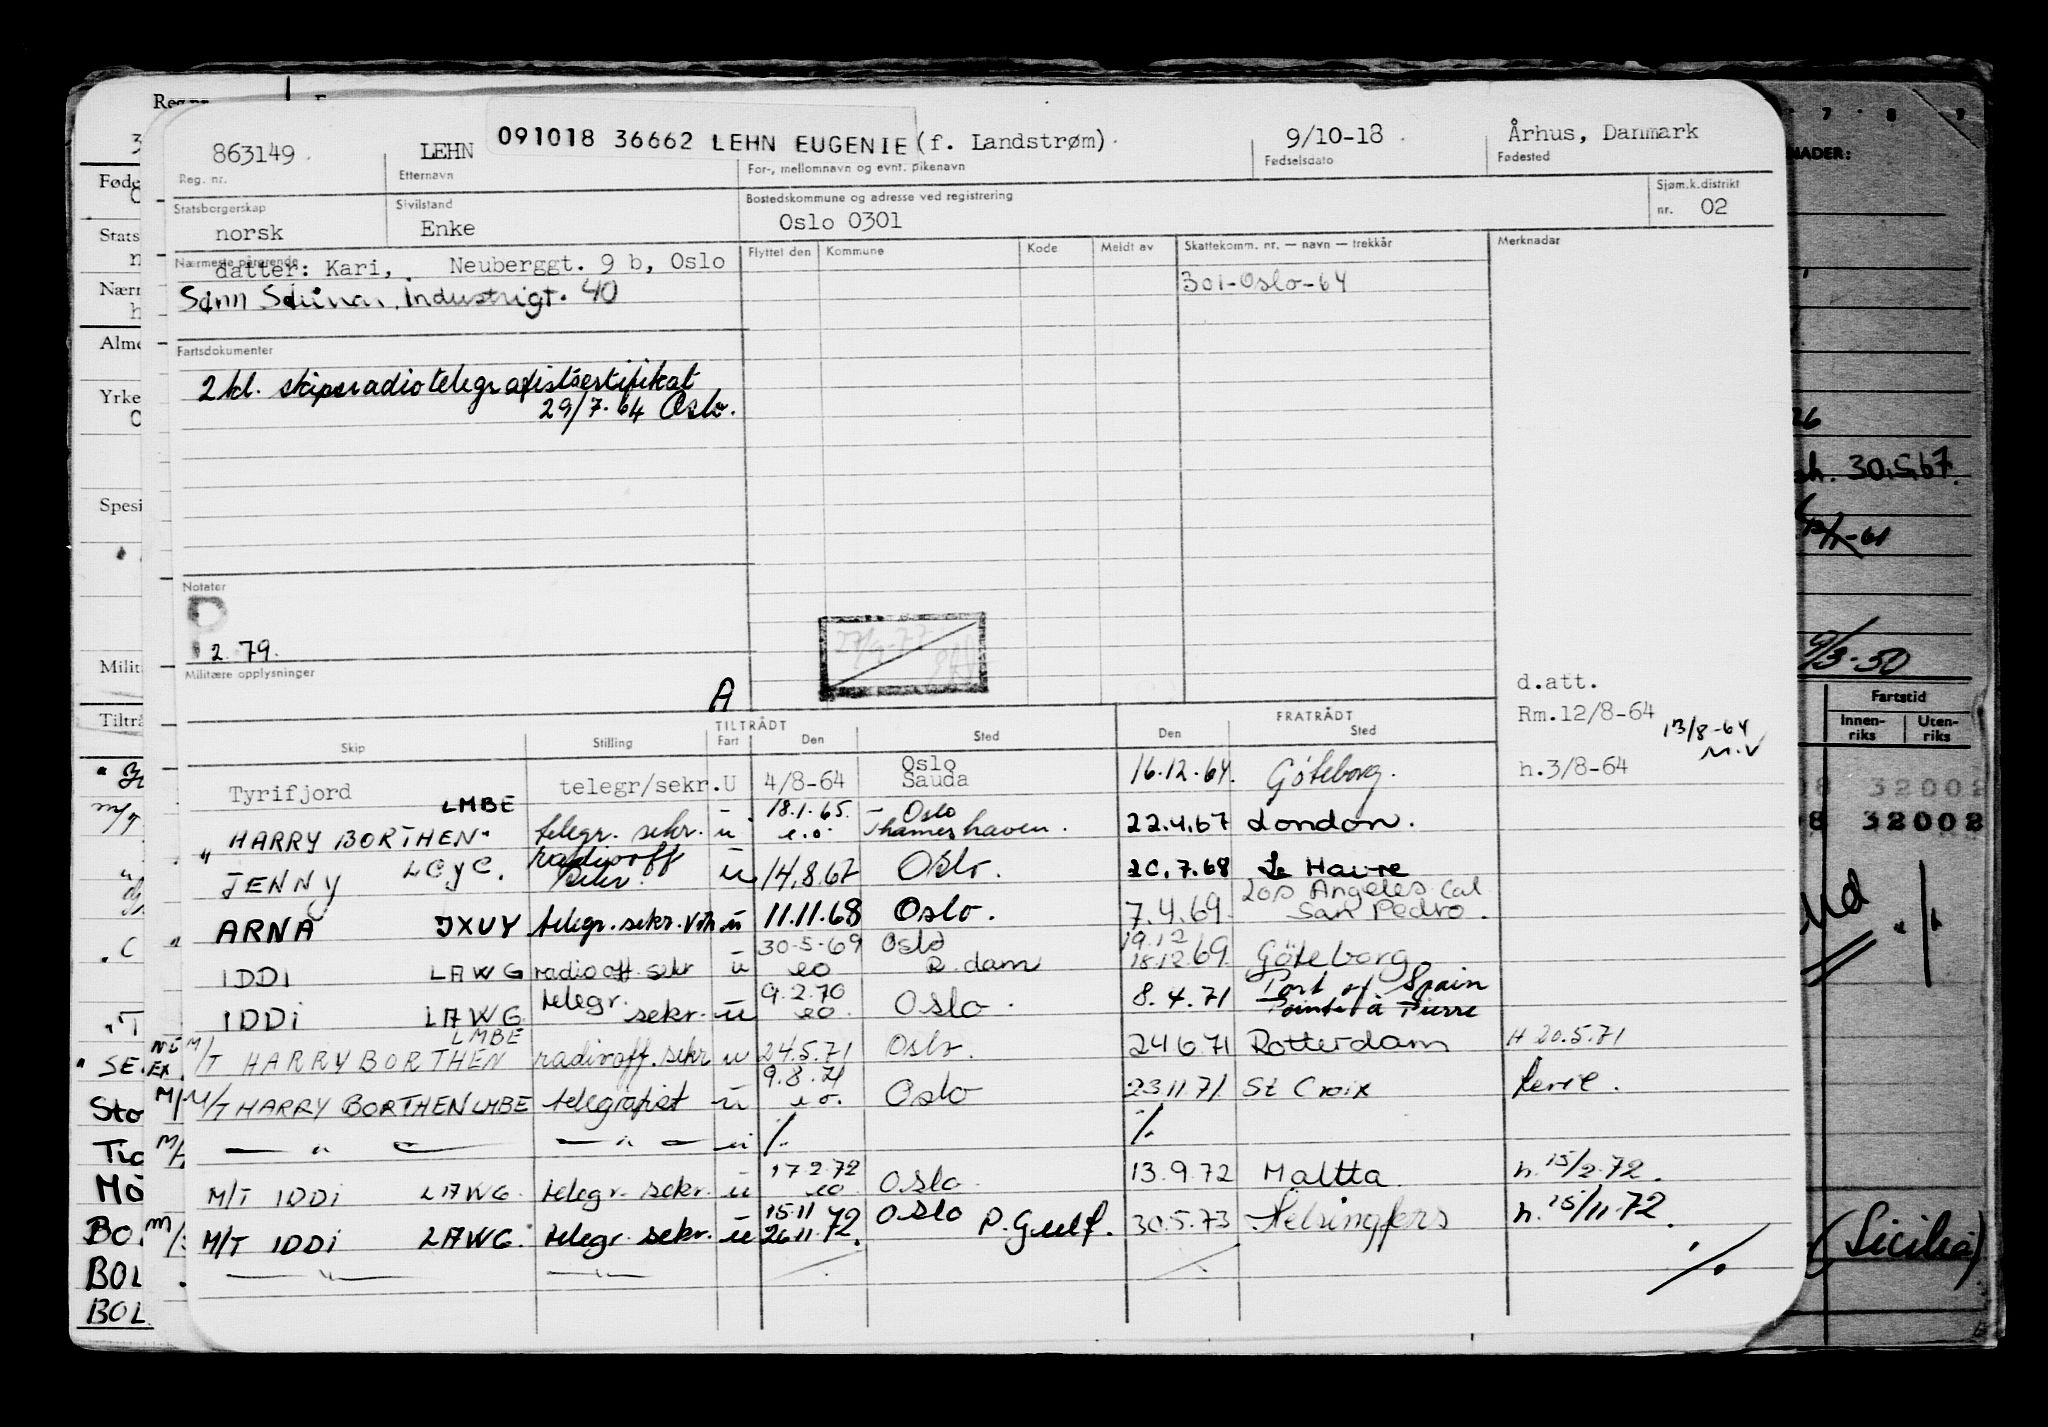 863149 LEHN 091018 36662 LEHN EUGENIE (f. Landstrøm) 9/10-18 Århus, Danmark
Reg. nr. Etternavn For-, mellomnavn og evnt. pikenavn Fødselsdato Fødested
Statsborgerskap Sivilstand Bostedskommune og adresse ved registrering Sjøm.k.distrikt
norsk Enke Oslo 0301 nr. 02
Nærmeste pårørende Flyttet den Kommune Kode Meldt av Skattekomm. nr. — navn — trekkår Merknader
datter: Kari, Neuberggt. 9 b, Oslo
Industrigt. 40 301-Oslo-64
Fartsdokumenter
2 kl. skipsradiotelegrafistsertifikat
29/7-64 Oslo.
Notater
P
2.79.
27/9-77
Militære opplysninger
A
d.att.
Rm.12/8-64 13/8-64
M.V
h.3/8-64
TILTRÅDT FRATRÅDT
Skip Stilling Fart Den Sted Den Sted
Tyrifjord telegr/sekr. U 4/8-64 Oslo Sauda 16.12.64. Göteborg.
"HARRY BORTHEN" LMBE telegr. sekr. u 18.1.65. e.o. Oslo Thameshaven. 22.4.67 London.
JENNY LCYC. radiooff sekr. u 14.8.67 Oslo. 20.7.68 Le Havre
ARNA JXUY telegr. sekr. u 11.11.68 Oslo. 7.4.69. Los Angeles Cal San Pedro.
IDDI LAWG radiooff. sekr u 30.5.69 eo Oslo R.dam 19.12 18.12.69 Göteborg
IDDI LAWG telegr. sekr. u 9.2.70 eo. Oslo. 8.4.71 Port of Spain Pointe à Pierre
M/T HARRY BORTHEN LMBE radiooff. sekr u 24.5.71 Oslo. 24.6.71 Rotterdam H 20.5.71
M/T HARRY BORTHEN LMBE telegrafist u 9.8.71 e.o. Oslo 23.11.71. St Croix ferie.
— " — — " — u /. /.
M/T IDDI LAWG. telegr. sekr. u 17.2.72 eo Oslo 13.9.72 Maltta h. 15/2.72.
M/T IDDI LAWG. telegr. sekr. u 15.11 26.11.72. Oslo P.Gulf. 30.5.73 Helsingfors h. 15/11.72.
— " — — " — /.
Fartstid
Innen-riks Uten-riks
32002
32002
30.5.67.
9/3-50
(Sicilia)
Reg.nr.
Føde
Stats
Nærn
Alme
Yrke
Spesi
Milit
Tiltrå
Sto
Mö
BOL
BOL